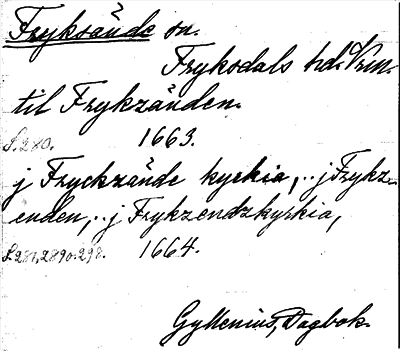 Fryksände sn.
Fryksdals hd. Vrm.
til Frykzänden.
S. 280. 1663.
j Fryckzände kyrkia,.. j Frykz-
enden,.. j Frykzendzkyrkia,
S. 281, 289 o. 298. 1664.
Gyllenius, Dagbok.